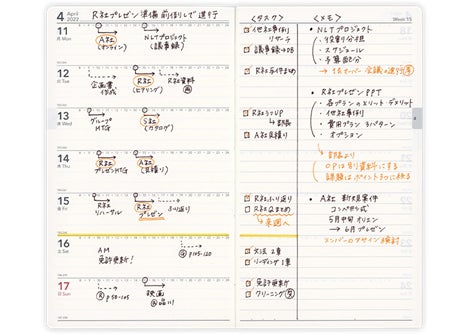 4 April 2022
R社プレゼン準備 前倒しで進行
11 月 Mon
A社
(オンライン)
NLTプロジェクト
(議事録)
12 火 Tue
企画書
作成
R社
(ヒアリング)
R社資料
13 水 Wed
グループ
MTG
S社
(カタログ)
14 木 Thu
プレゼンMTG
A社
(見積り)
15 金 Fri
R社
リハーサル
R社
プレゼン
ふり返り
16 土 Sat
AM
免許更新!
p105-120
17 日 Sun
p50-105
映画
品川
<タスク>
他社事例
リサーチ
議事録→DB
R社
R社
→部長
A社見積り
R社ふり返り
R社
→来週へ
文法 2章
リーディング 1章
免許更新
クリーニング
<メモ>
Week 15
・NLTプロジェクト
・役割分担
・スケジュール
・予算配分
・R社プレゼンPPT
・各プランのメリット デメリット
・他社事例
・費用プラン 3パターン
・オプション
→部長より
OPは別資料にする
課題はポイント3つに絞る
・A社 新規案件
コンペ形式
5月中旬 オリエン
→6月プレゼン
メンバーのアサイン検討